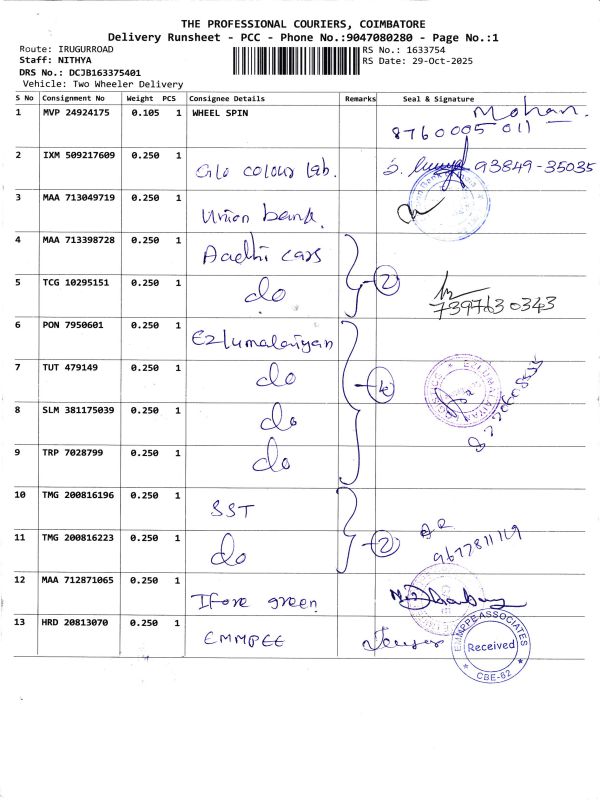 THE PROFESSIONAL COURIERS, COIMBATORE
Delivery Runsheet - PCC - Phone No.:9047080280 - Page No.:1
Route: IRUGURROAD
RS No.: 1633754
Staff: NITHYA
RS Date: 29-Oct-2025
DRS No.: DCJB163375401
Vehicle: Two Wheeler Delivery
S No Consignment No Weight PCS Consignee Details Remarks Seal & Signature
1 MVP 24924175 0.105 1 WHEEL SPIN Mohan.
8760005011
2 IXM 509217609 0.250 1 Glo colour lab. 93849-35035
3 MAA 713049719 0.250 1 Union bank.
4 MAA 713398728 0.250 1 Aadhi cars
2
5 TCG 10295151 0.250 1 do
7397630343
6 PON 7950601 0.250 1 Ezlumalaiyan
7 TUT 479149 0.250 1 do
4
8 SLM 381175039 0.250 1 do
9 TRP 7028799 0.250 1 do
10 TMG 200816196 0.250 1 SST
11 TMG 200816223 0.250 1 do
2
12 MAA 712871065 0.250 1 Ifore green
13 HRD 20813070 0.250 1 EMMPEE
EMMPPE ASSOCIATES
Received
CBE-62